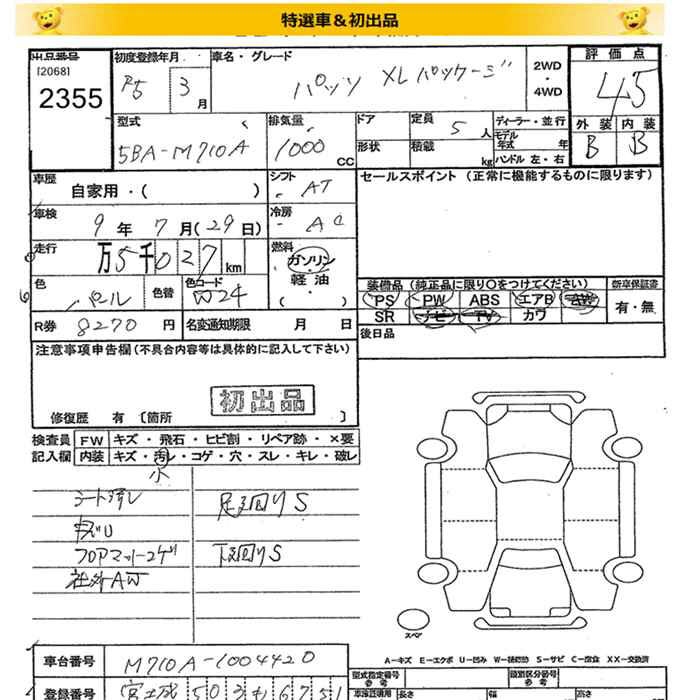 特選車＆初出品
出品番号 初度登録年月 車名・グレード 評価点
[2068]
2355
R5 3月
パッソ XLパッケージ
2WD・4WD
4.5
型式 排気量 ドア 定員 5人 ディーラー・並行 外装 内装
5BA-M710A 1000 CC 形状 積載 kg モデル年式 年 B B
ハンドル 左・右
車歴 シフト セールスポイント（正常に機能するものに限ります）
自家用・（ ） AT
車検 冷房
9年7月（29日） AC
走行 燃料
万5千027km ガソリン・軽油・（ ）
色 色替 色コード 装備品（純正品に限り○をつけてください） 新車保証書
パール W24 PS PW ABS エアB AW 有・無
SR ナビ TV カワ
R券 8270円 名変通知期限 月 日 後日品
注意事項申告欄（不具合内容等は具体的に記入して下さい）
初出品
修復歴 有〔箇所 〕
検査員 FW キズ・飛石・ヒビ割・リペア跡・×要
記入欄 内装 キズ・汚レ・コゲ・穴・スレ・キレ・破レ
小
シート汚レ 足廻りS
フロアマットコゲ 下廻りS
社外AW
スペア
A－キズ E－エクボ U－凹ミ W－補修跡 S－サビ C－腐食 XX－交換済
車台番号 M710A-1004420
型式指定番号 参考 類別区分番号 参考
登録番号 宮城 503 も 6751
車体諸元 長さ 幅 高さ